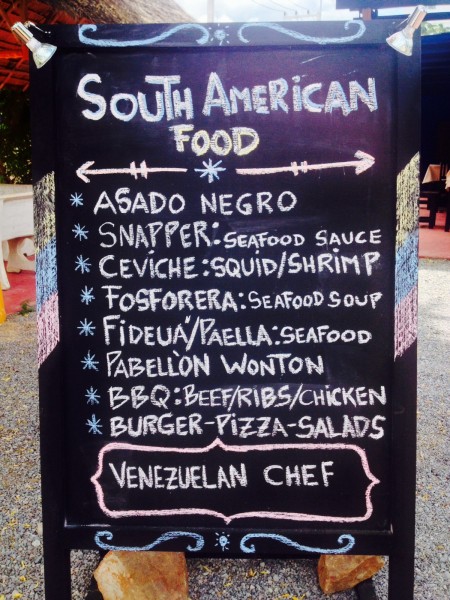 SOUTH AMERICAN
FOOD
ASADO NEGRO
SNAPPER: SEAFOOD SAUCE
CEVICHE: SQUID/SHRIMP
FOSFORERA: SEAFOOD SOUP
FIDEUÁ/PAELLA: SEAFOOD
PABELLÒN WONTON
BBQ: BEEF/RIBS/CHICKEN
BURGER-PIZZA-SALADS
VENEZUELAN CHEF